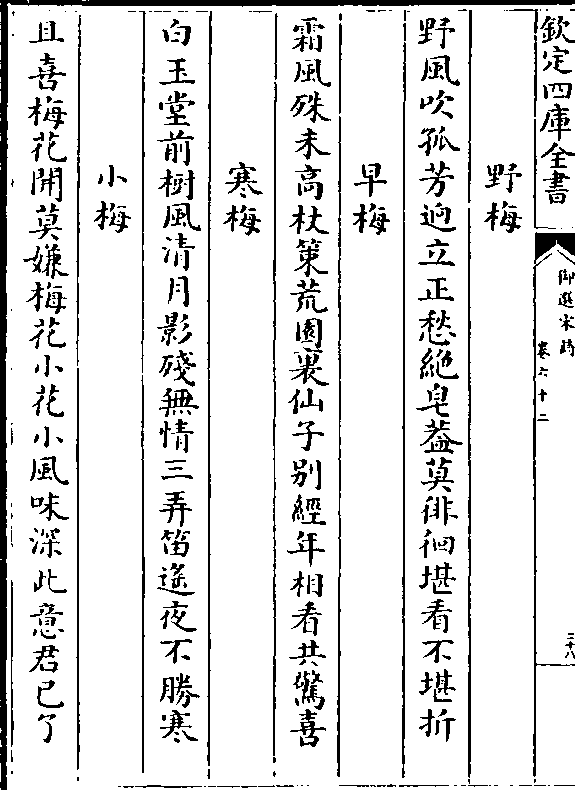 欽定四庫全書
御選宋詩
卷六十二
三十八
野梅
野風吹孤芳迥立正愁絶皂葢莫徘徊堪看不堪折
早梅
霜風殊未高杖策荒園裏仙子别經年相看共驚喜
寒梅
白玉堂前樹風清月影殘無情三弄笛遥夜不勝寒
小梅
且喜梅花開莫嫌梅花小花小風味深此意君已了